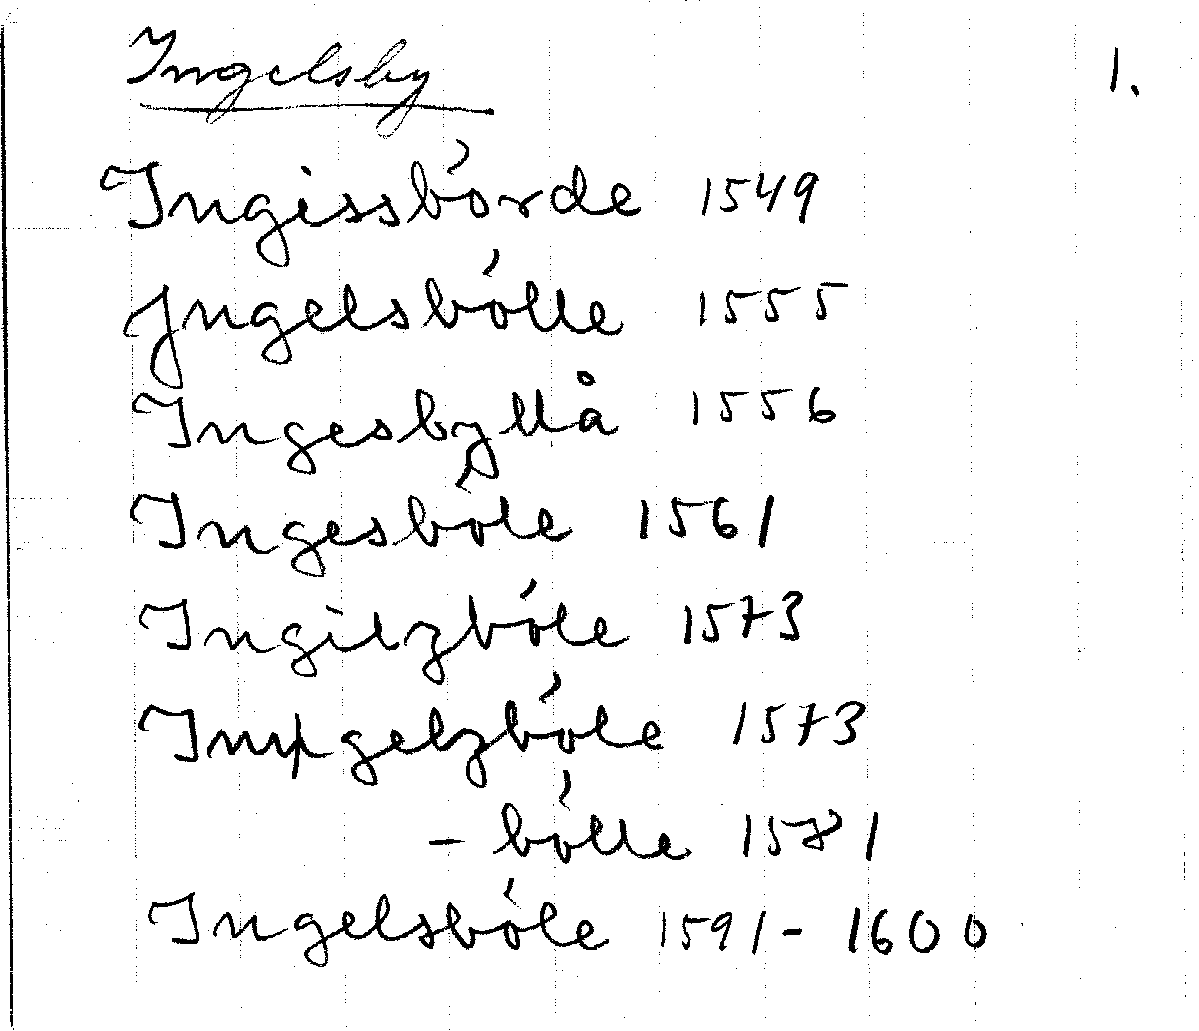 Ingelsby 1.
Ingissbórde 1549
Jngelsbólle 1555
Ingesbyllå 1556
Ingesbóle 1561
Ingilzbóle 1573
Imgelzbóle 1573
- bólle 1581
Ingelsbóle 1591 - 1600